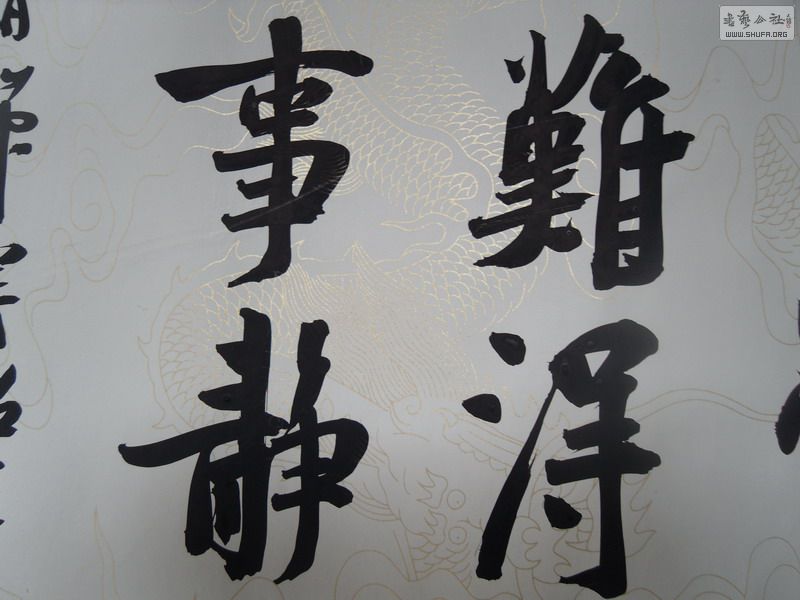 難得
事静
書藝公社
WWW.SHUFA.ORG